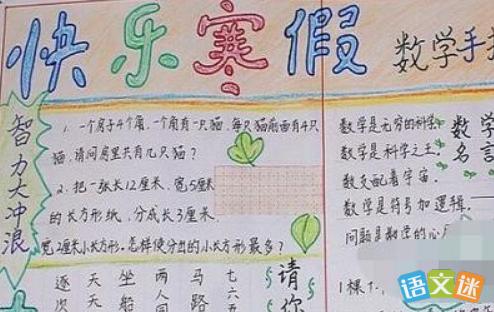 快乐寒假
数学手
智力大冲浪
1. 一个房子4个角，一个角有一只猫，每只猫前面有4只
猫，请问房里共有几只猫？
2. 把一张长12厘米，宽5厘米
的长方形纸，分成长3厘米，
宽2厘米小长方形。怎样使分出的小长方形最多？
逐 天 坐 两 马 七
次 天 船 人 路
请你
数学是无穷的科学。
数学是科学之王。
数支配着宇宙。
数学是符号加逻辑。
问题是数学的心
数学名言
1棵
语文迷